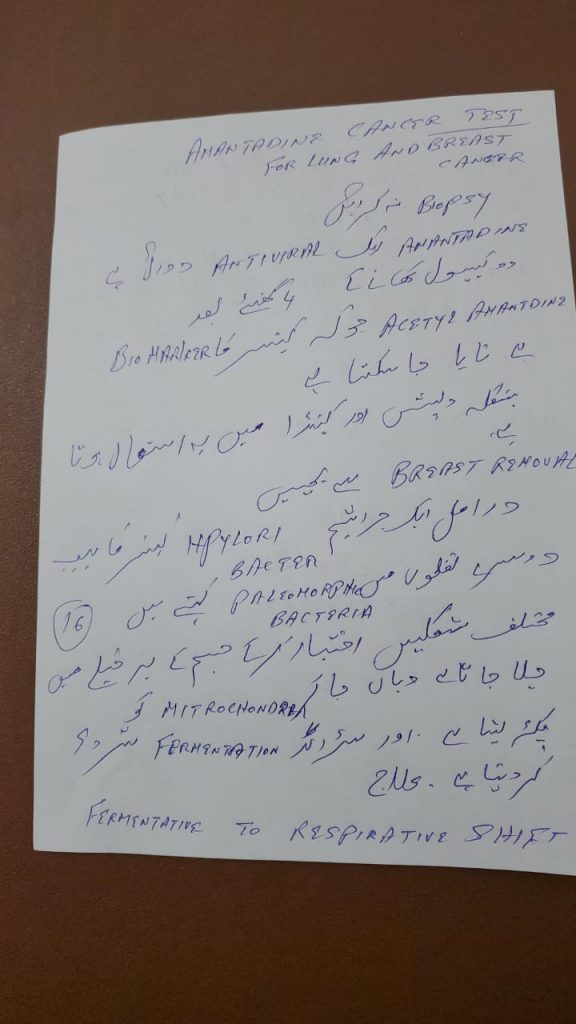 AMANTADINE CANCER TEST
FOR LUNG AND BREAST
CANCER
BIOPSY نہ کرائیں
AMANTADINE ایک ANTIVIRAL دوائی ہے
دو کیپسول کھانے کے 4 گھنٹے بعد
ACETYL AMANTDINE جو کہ کینسر کا BIOMARKER
ہے ناپا جا سکتا ہے
بنگلہ دیش اور کینڈا میں یہ استعمال ہوتا
ہے
BREAST REMOVAL سے بچیں
دراصل ایک جراثیم HPYLORI کینسر کا سبب
BACTER
دوسرے لفظوں میں PALEOMORPHIC کہتے ہیں
BACTERIA
16
مختلف شکلیں اختیار کر کے جسم کے ہر خلیے میں
چلا جاتا ہے وہاں جا کر MITROCHONDRIA کو
پکڑ لیتا ہے . اور FERMENTATION شروع
کر دیتا ہے . علاج
FERMENTATIVE TO RESPIRATIVE SHIFT